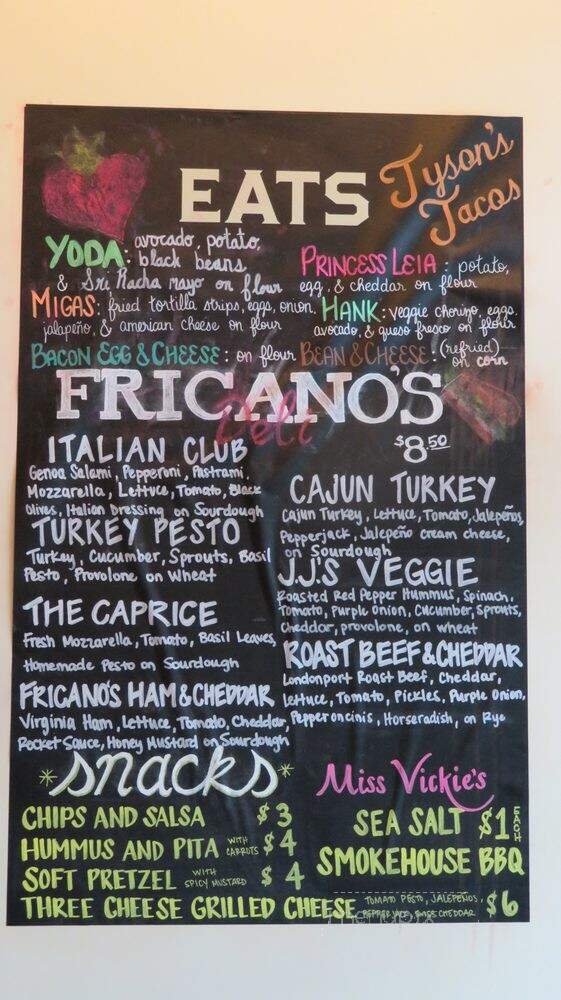 EATS
Tyson's
Tacos
YODA: avocado, potato,
black beans
& Sri Racha mayo on flour
PRINCESS LEIA: potato,
egg, & cheddar on flour
MIGAS: fried tortilla strips, eggs, onion,
jalapeño, & american cheese on flour
HANK: veggie chorizo, eggs,
avocado, & queso fresco on flour
BACON EGG & CHEESE: on flour
BEAN & CHEESE: (refried)
on corn
FRICANO'S
Deli
$8.50
ITALIAN CLUB
Genoa Salami, Pepperoni, Pastrami,
Mozzarella, Lettuce, Tomato, Black
Olives, Italian Dressing on Sourdough
TURKEY PESTO
Turkey, Cucumber, Sprouts, Basil
Pesto, Provolone on Wheat
THE CAPRICE
Fresh Mozzarella, Tomato, Basil Leaves,
Homemade Pesto on Sourdough
FRICANO'S HAM & CHEDDAR
Virginia Ham, Lettuce, Tomato, Cheddar,
Rocket Sauce, Honey Mustard on Sourdough
CAJUN TURKEY
Cajun Turkey, Lettuce, Tomato, Jalepeños,
Pepperjack, Jalepeño cream cheese,
on Sourdough
J.J.'S VEGGIE
Roasted Red Pepper Hummus, Spinach,
Tomato, Purple Onion, Cucumber, Sprouts,
Cheddar, provolone, on wheat
ROAST BEEF & CHEDDAR
Londonport Roast Beef, Cheddar,
Lettuce, Tomato, Pickles, Purple Onion,
Pepperoncinis, Horseradish, on Rye
*snacks*
CHIPS AND SALSA $3
HUMMUS AND PITA WITH CARROTS $4
SOFT PRETZEL WITH SPICY MUSTARD $4
THREE CHEESE GRILLED CHEESE TOMATO PESTO, JALEPEÑOS, $6
Miss Vickie's
SEA SALT $1 EACH
SMOKEHOUSE BBQ